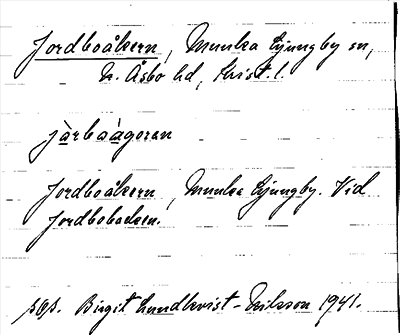 Jordboåkern, Munka Ljungby sn,
N. Åsbo hd, Krist. l.
jàrbaàgoran
Jordboåkern, Munka Ljungby. Vid
Jordbobacken.
pop. Birgit Lundkvist-Eriksson 1941.